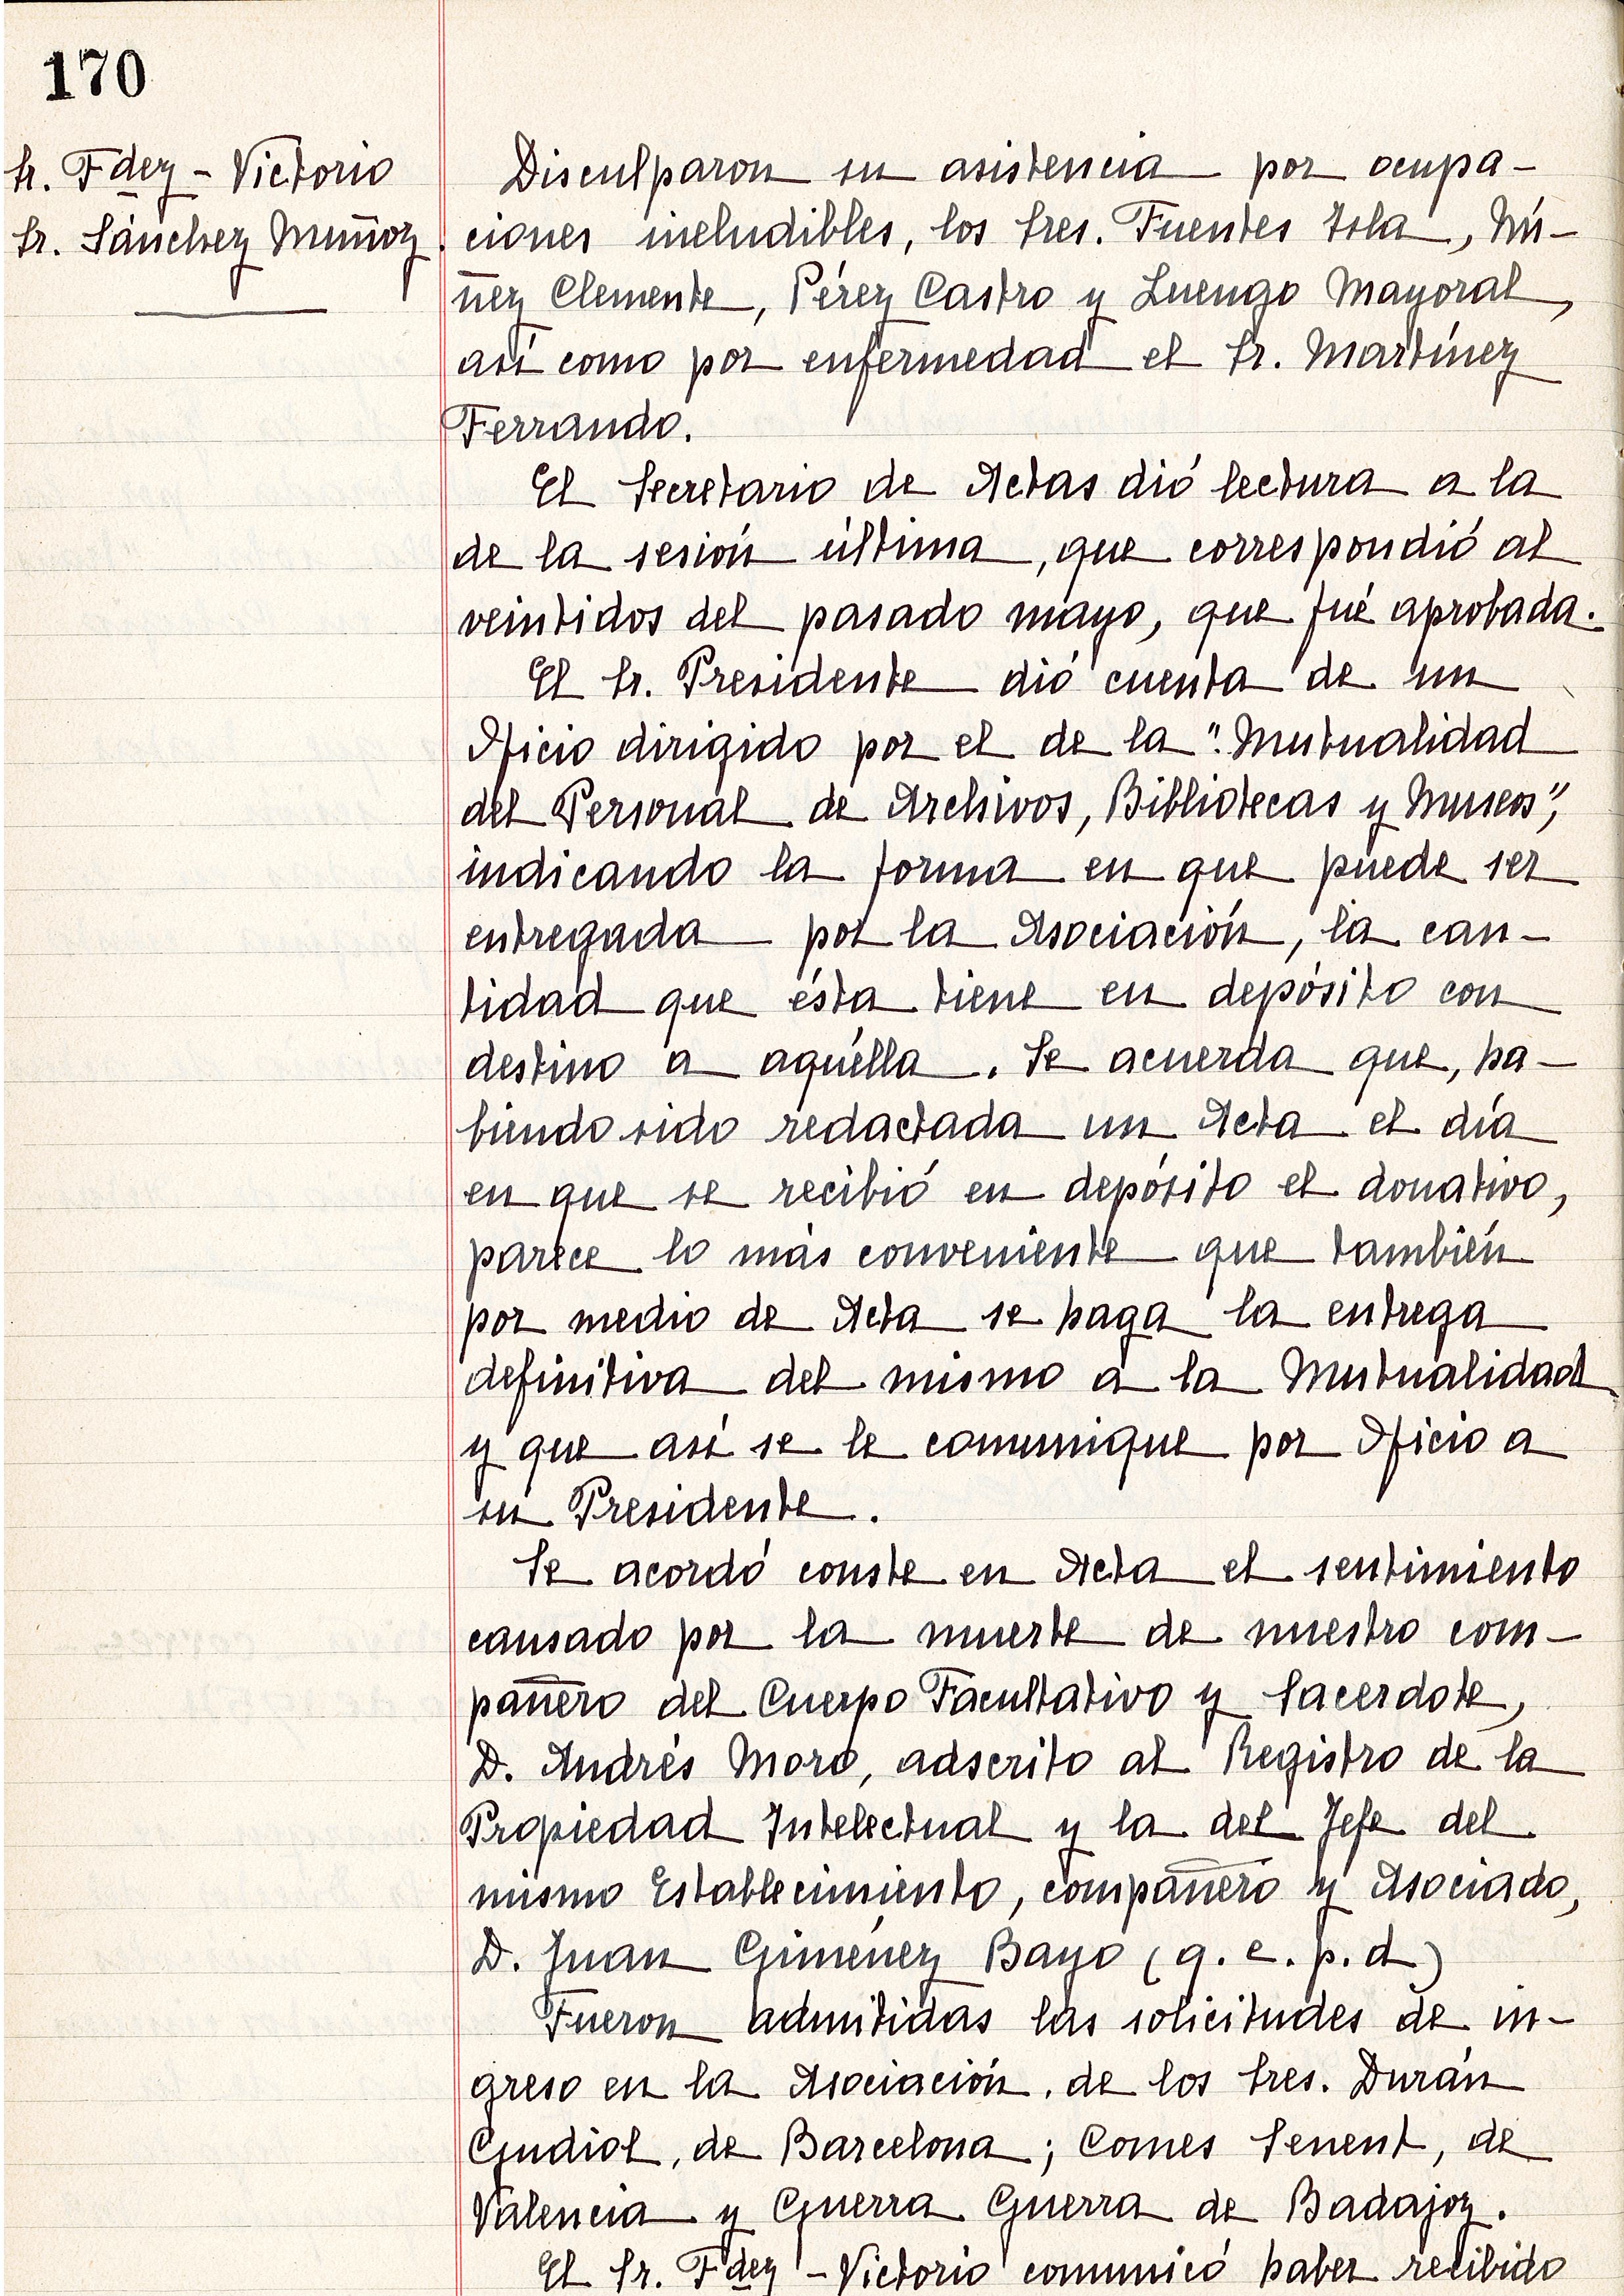 170
Sr. Fdez - Victorio
Sr. Sánchez Muñoz.
Disculparon su asistencia por ocupa-
ciones ineludibles, los Sres. Fuentes Isla, Nú-
ñez Clemente, Pérez Castro y Luengo Mayoral,
así como por enfermedad el Sr. Martínez
Ferrando.
El Secretario de Actas dió lectura a la
de la sesión última, que correspondió al
veintidos del pasado mayo, que fué aprobada.
El Sr. Presidente dió cuenta de un
Oficio dirigido por el de la "Mutualidad
del Personal de Archivos, Bibliotecas y Museos",
indicando la forma en que puede ser
entregada por la Asociación, la can-
tidad que ésta tiene en depósito con
destino a aquélla. Se acuerda que, ha-
biendo sido redactada un Acta el día
en que se recibió en depósito el donativo,
parece lo más conveniente que también
por medio de Acta se haga la entrega
definitiva del mismo a la Mutualidad
y que así se le comunique por Oficio a
su Presidente.
Se acordó conste en Acta el sentimiento
causado por la muerte de nuestro com-
pañero del Cuerpo Facultativo y Sacerdote,
D. Andrés Moro, adscrito al Registro de la
Propiedad Intelectual y la del Jefe del
mismo Establecimiento, compañero y Asociado,
D. Juan Giménez Bayo (q. e. p. d.)
Fueron admitidas las solicitudes de in-
greso en la Asociación, de los Sres. Durán
Gudiol, de Barcelona; Comes Senent, de
Valencia y Guerra Guerra de Badajoz.
El Sr. Fdez - Victorio comunicó haber recibido